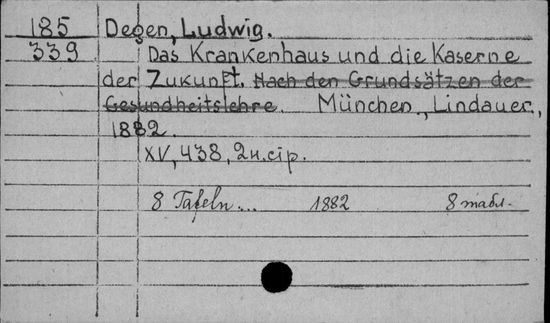 185 Degen, Ludwig.
339 Das Krankenhaus und die Kaserne
der Zukunft. Nach den Grundsätzen der
Gesundheitslehre. München, Lindauer,
1882.
XV, 438, 2 н. стр.
8 Tafeln... 1882 8 табл.